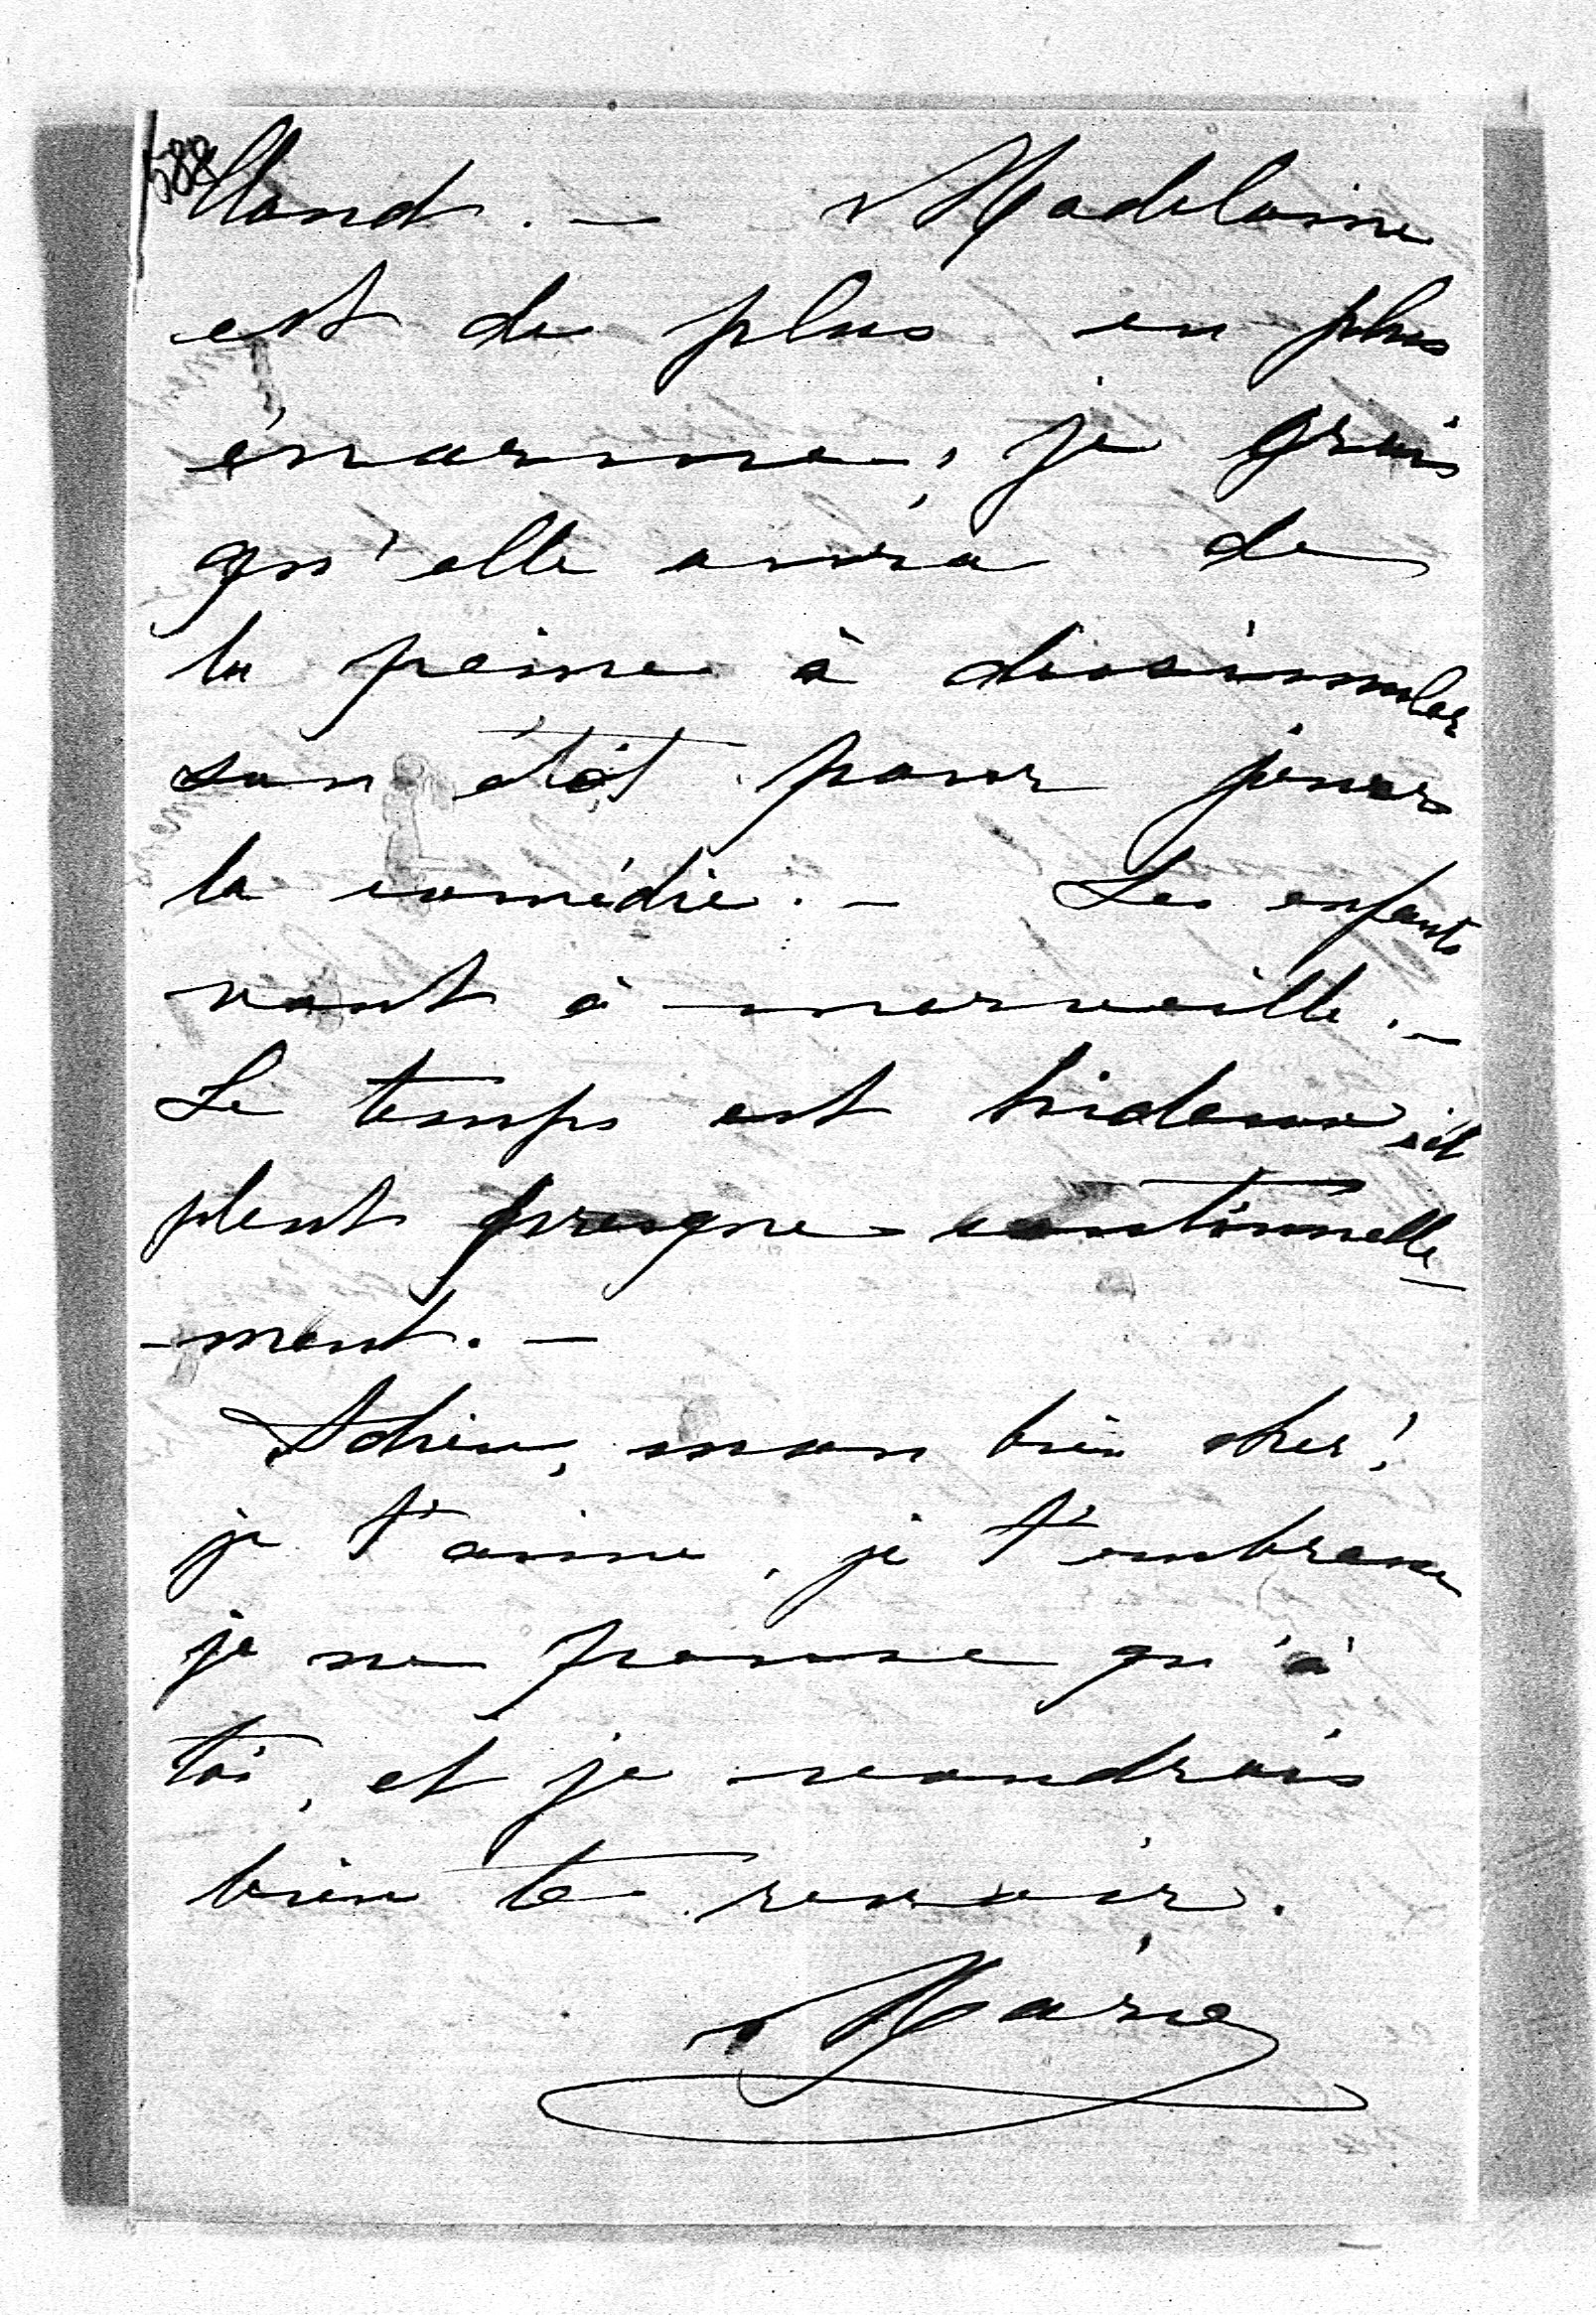 588
lland. — Madeleine
est de plus en plus
énorme, je crois
qu'elle aura de
la peine à dissimuler
son état pour jouer
la comédie. — Les enfants
vont à merveille. —
Le temps est hideux, il
pleut presque continuelle-
-ment. —
Adieu, mon bien cher!
je t'aime, je t'embrasse
je ne pense qu'à
toi, et je voudrais
bien te revoir.
Marie